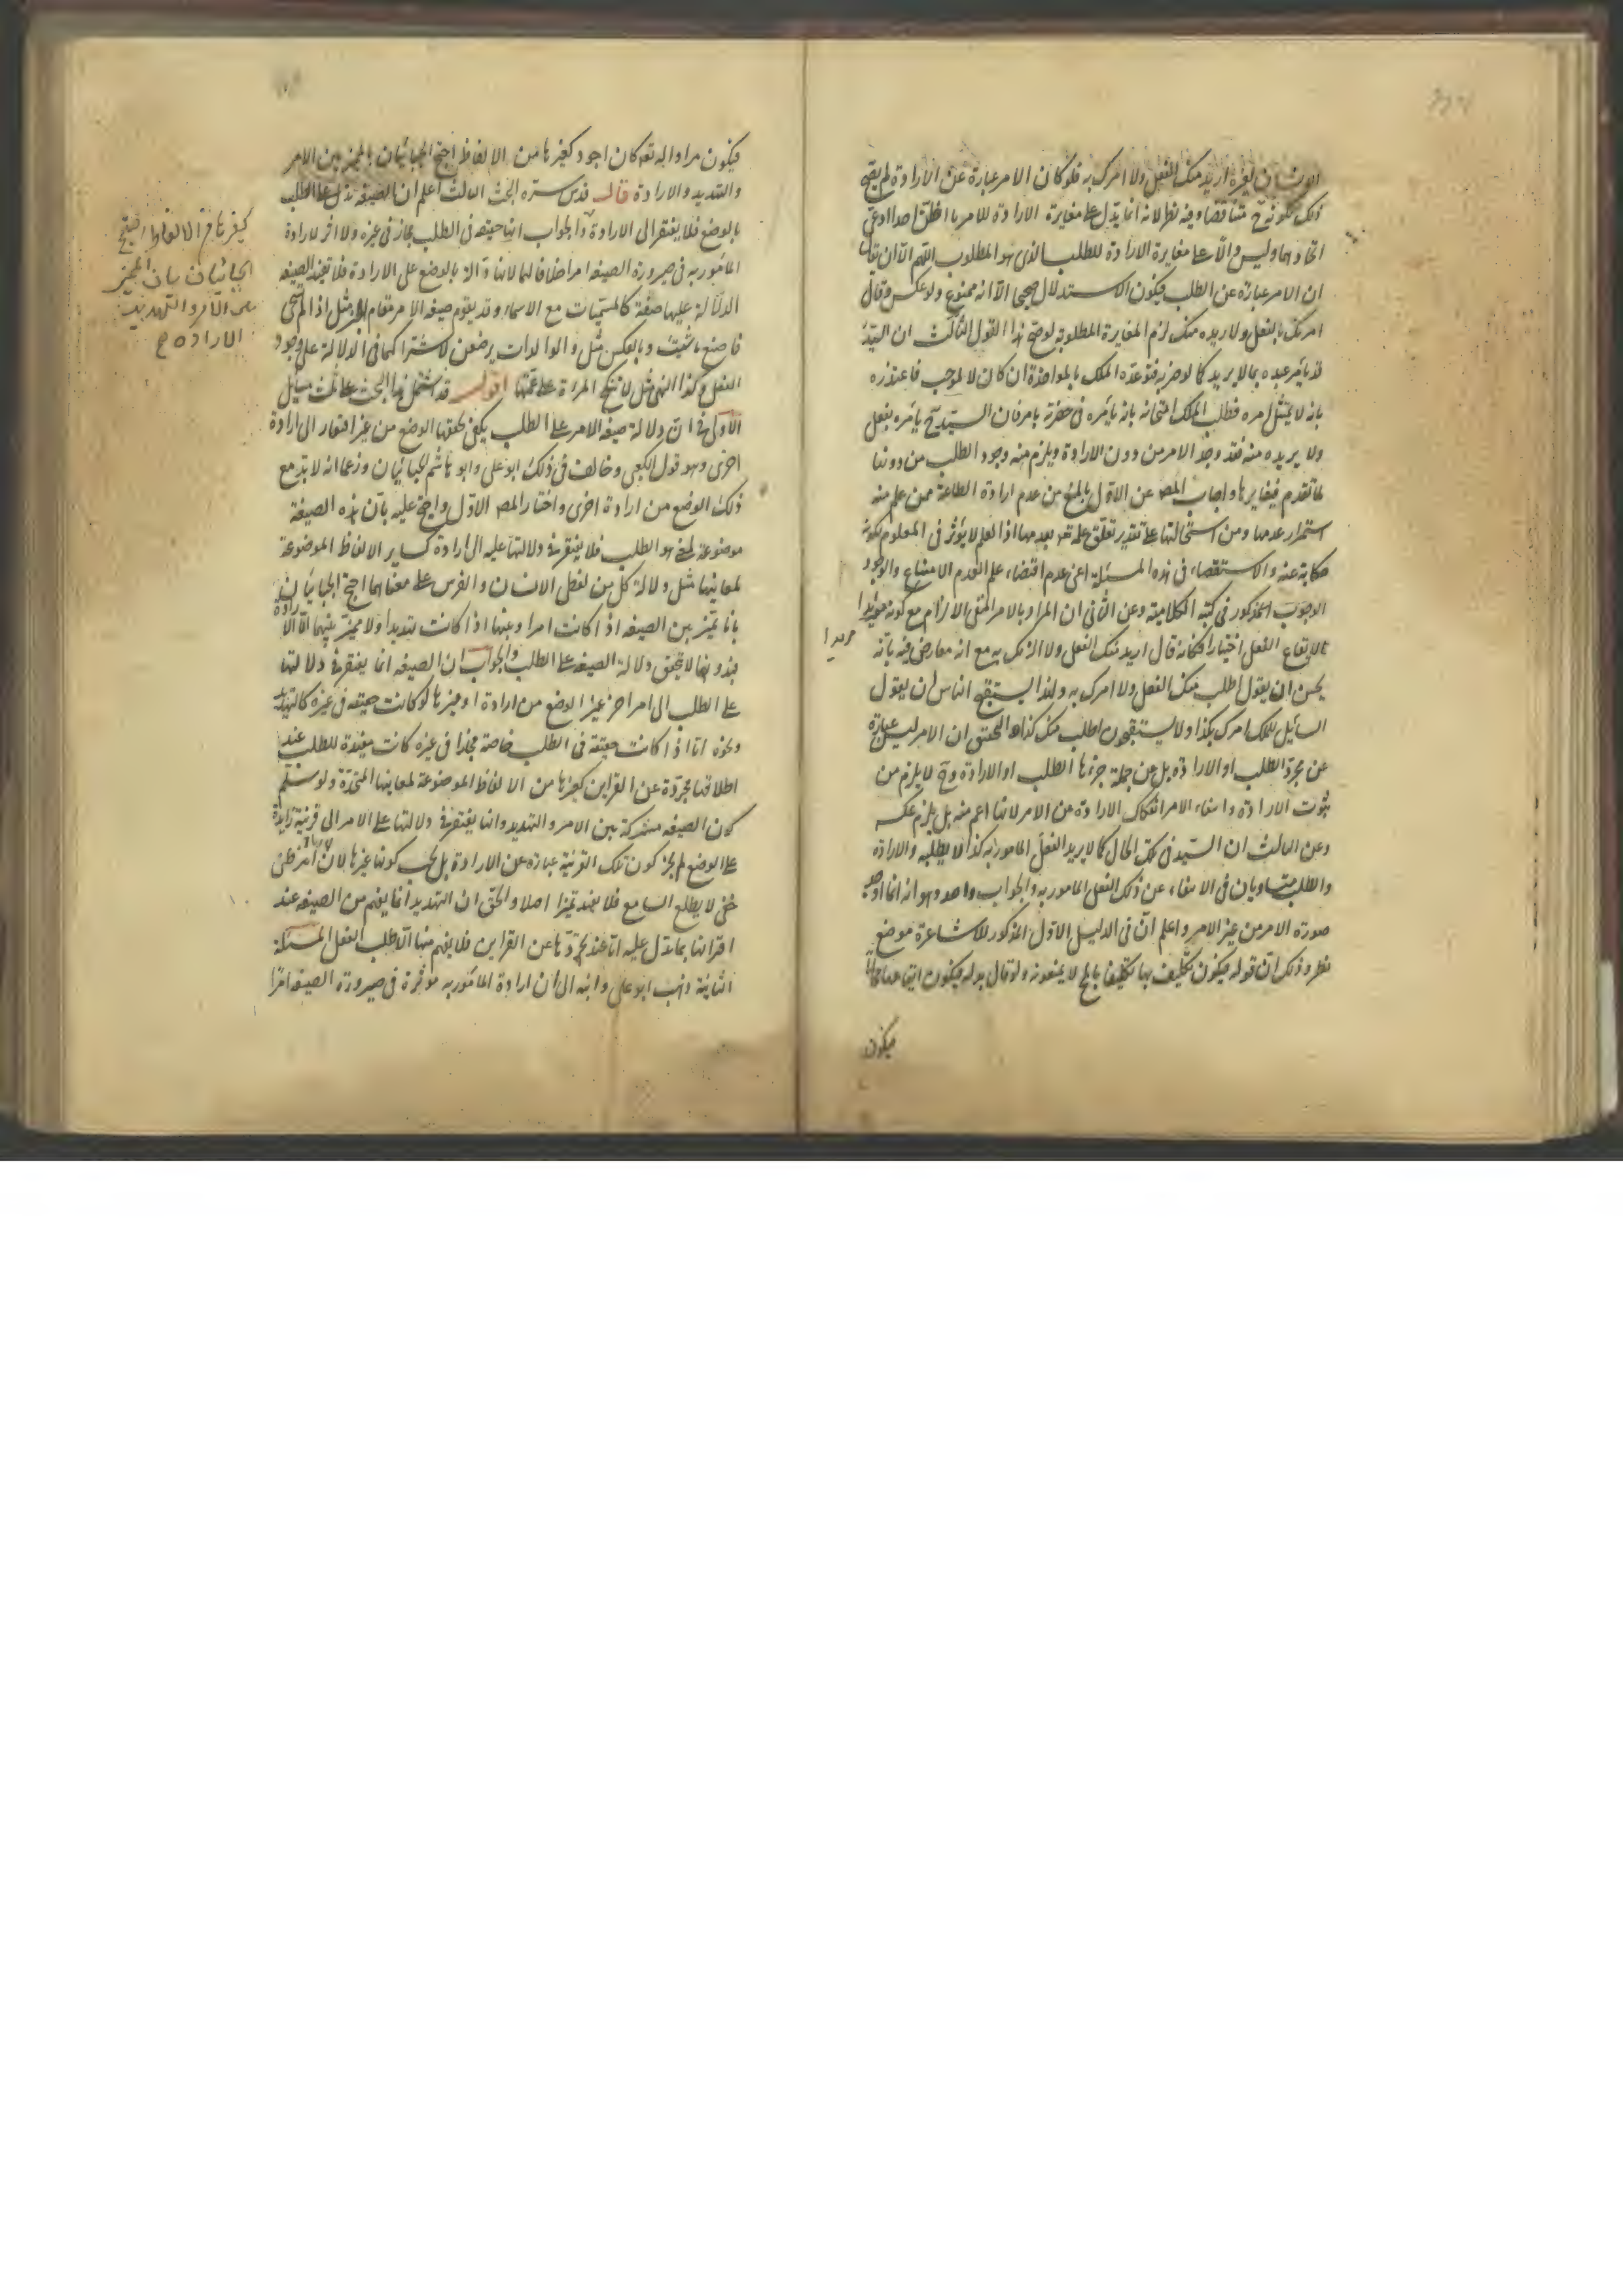 الانسان لغيره اريد منك الفعل ولا امرك به فلو كان الامر عبارة عن الارادة لم يصح
ذلك لكونه ح متناقضا وفيه نظر لانه انما يدل على مغايرة الارادة للامر
اتحادهما وليس دالا على مغايرة الارادة للطلب الذى هو المطلوب اللهم الا ان يقال
ان الامر عبارة عن الطلب فيكون الاستدلال صحيحا الا انه ممنوع ولو عكس وقال
امرتك بالفعل ولا اريده منك لزم المغايرة المطلوبة لو صح هذا القول الثالث ان السيد
قد يأمر عبده بما لا يريد كما لو ضربه فتوعده الملك بالمواخذة ان كان لا لموجب فاعتذره
بانه لا يمتثل امره فطلب الملك امتحانه بانه يأمره فى حضرته بامر فان السيد ح يأمره بفعل
ولا يريده منه فقد وجد الامر من دون الارادة ويلزم منه وجود الطلب من دونها
لما تقدم فيغايرها واجاب المص عن الاول بالمنع من عدم ارادة الطاعة ممن علم منه
استمرار عدمها ومن استحالتها على تقدير تعلق علمه تعه بعدمها اذ العلم لا يؤثر فى المعلوم لكونه
حكاية عنه والاستقصاء فى هذه المسئلة اعنى عدم اقتضاء علم العدم الامتناع والوجود
الوجوب المذكور فى كتبه الكلامية وعن الثانى ان المراد بالامر المنفى الالزام مع كونه مريدا
لايقاع الفعل اختيارا فكانه قال اريد منك الفعل ولا الزمك به مع انه معارض فيه بانه
مريدا
يحسن ان يقول اطلب منك الفعل ولا امرك به ولهذا يستقبح الناس ان يقول
السائل للملك امرك بكذا ولا يستقبحون اطلب منك كذا والتحقيق ان الامر ليس عبارة
عن مجرد الطلب او الارادة بل عن جملة جزئها الطلب او الارادة وح لا يلزم من
ثبوت الارادة وانتفاء الامر انفكاك الارادة عن الامر لانها اعم منه بل يلزم عكسه
وعن الثالث ان السيد فى تلك الحال كما لا يريد الفعل المامور به كذا لا يطلبه والارادة
والطلب متساويان فى الانتفاء عن ذلك الفعل المامور به والجواب واحد وهو انه انما اوجد
صورة الامر من غير الامر واعلم ان فى الدليل الاول المذكور للاشاعرة موضع
نظر وذلك ان قوله فيكون تكليف بها تكليفا بالمح لا يمنعونه ولو قال بدله فيكون
فيكون
فيكون مرادا لله تعه كان اجود كغيرها من الالفاظ احتج الجبائيان بالمميز بين الامر
والتهديد والارادة قال قدس سره البحث الثالث اعلم ان الصيغة تدل على الطلب
بالوضع فلا يفتقر الى الارادة والجواب انها حقيقة فى الطلب مجاز فى غيره ولا اثر لارادة
المأمور به فى صيرورة الصيغة امرا خلافا لهما لانها دالة بالوضع على الارادة فلا تفيد الصيغة
الدلالة عليها صفة كالمسميات مع الاسماء وقد يقوم صيغة الامر مقام الخبر مثل اذا لم تستحى
فاصنع ما شئت وبالعكس مثل والوالدات يرضعن لاشتراكهما فى الدلالة على وجود
الفعل وكذا النهى مثل لا تنكح المرءة على عمتها اقول قد اشتمل هذا البحث على ثلث مسائل
الاولى فى ان دلالة صيغة الامر على الطلب يكفى تحققها الوضع من غير افتقار الى ارادة
اخرى وهو قول الكعبى وخالف فى ذلك ابو على وابو هاشم الجبائيان وزعما انه لا بد مع
ذلك الوضع من ارادة اخرى واختار المص الاول واحتج عليه بان هذه الصيغة
موضوعة لمعنى هو الطلب فلا يفتقر فى دلالتها عليه الى ارادة كساير الالفاظ الموضوعة
لمعانيها مثل دلالة كل من لفظى الانسان والفرس على معناهما احتج الجبائيان
بانا نميز بين الصيغة اذا كانت امرا وبينها اذا كانت تهديدا ولا مميز بينهما الا الارادة
فبدونها لا يتحقق دلالة الصيغة على الطلب والجواب ان الصيغة انما يفتقر فى دلالتها
على الطلب الى امر اخر غير الوضع من ارادة او غيرها لو كانت حقيقة فى غيره كالتهديد
ونحوه اما اذا كانت حقيقة فى الطلب خاصة مجازا فى غيره كانت مفيدة للطلب عند
اطلاقها مجردة عن القراين كغيرها من الالفاظ الموضوعة لمعانيها المتحدة ولو سلم
كون الصيغة مشتركة بين الامر والتهديد وانها يفتقر فى دلالتها على الامر الى قرينة زايدة
على الوضع لم يجز كون تلك القرينة عبارة عن الارادة بل يجب كونها غيرها لان الارادة امر باطن
خفى لا يطلع السامع فلا يفيد تميزا اصلا والحق ان التهديد انما يفهم من الصيغة عند
اقترانها بما يدل عليه اما عند تجردها عن القراين فلا يفهم منها الا طلب الفعل المسئلة
الثانية ذهب ابو على وابنه الى ان ارادة المأمور به مؤثرة فى صيرورة الصيغة امرا
كغيرها من الالفاظ احتج
الجبائيان بان المميز
بين الامر والتهديد
الارادة ح